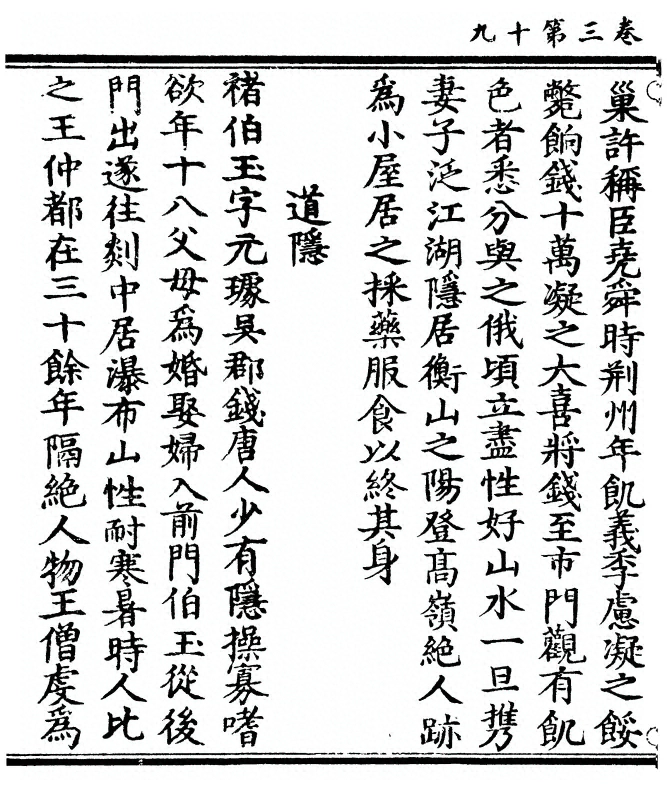 卷三第十九
巢許稱臣堯舜時荆州年飢義季慮凝之餒
斃餉錢十萬凝之大喜將錢至市門觀有飢
色者悉分與之俄頃立盡性好山水一旦携
妻子泛江湖隱居衡山之陽登髙嶺絶人跡
為小屋居之採藥服食以終其身
道隱
褚伯玉字元璩吳郡錢唐人少有隱操寡嗜
欲年十八父母為婚娶婦入前門伯玉從後
門出遂往剡中居瀑布山性耐寒暑時人比
之王仲都在三十餘年隔絶人物王僧虔為